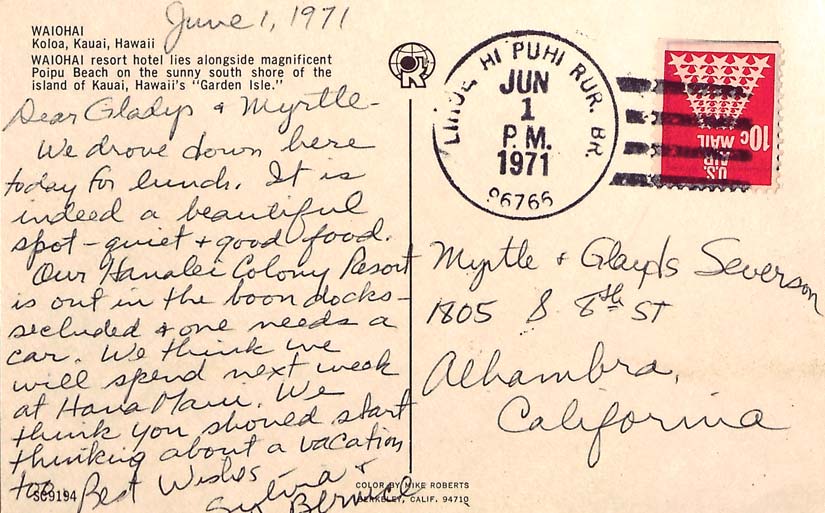 June 1, 1971
WAIOHAI
Koloa, Kauai, Hawaii
WAIOHAI resort hotel lies alongside magnificent
Poipu Beach on the sunny south shore of the
island of Kauai, Hawaii's "Garden Isle."
Dear Gladys & Myrtle-
We drove down here
today for lunch. It is
indeed a beautiful
spot - quiet + good food.
Our Hanalei Colony Resort
is out in the boon docks -
secluded & one needs a
car. We think we
will spend next week
at Hana Maui. We
think you should start
thinking about a vacation
too Best Wishes
Sylvia &
Bernice
SC9194
HI PUHI RUR. BR.
JUN
1
P.M.
1971
96766
10c
U.S.
AIR
MAIL
Myrtle & Glayds Severson
1805 S 8th ST
Alhambra,
California
COLOR BY MIKE ROBERTS
BERKELEY, CALIF. 94710